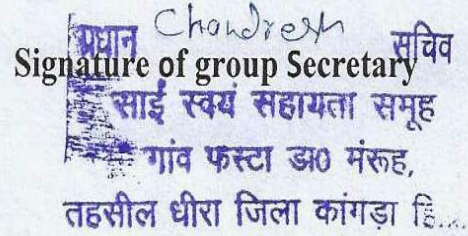 प्रधान Chandresh सचिव
Signature of group Secretary
साई स्वयं सहायता समूह
गांव फस्टा डा0 मंरूह,
तहसील धीरा जिला कांगड़ा हि...